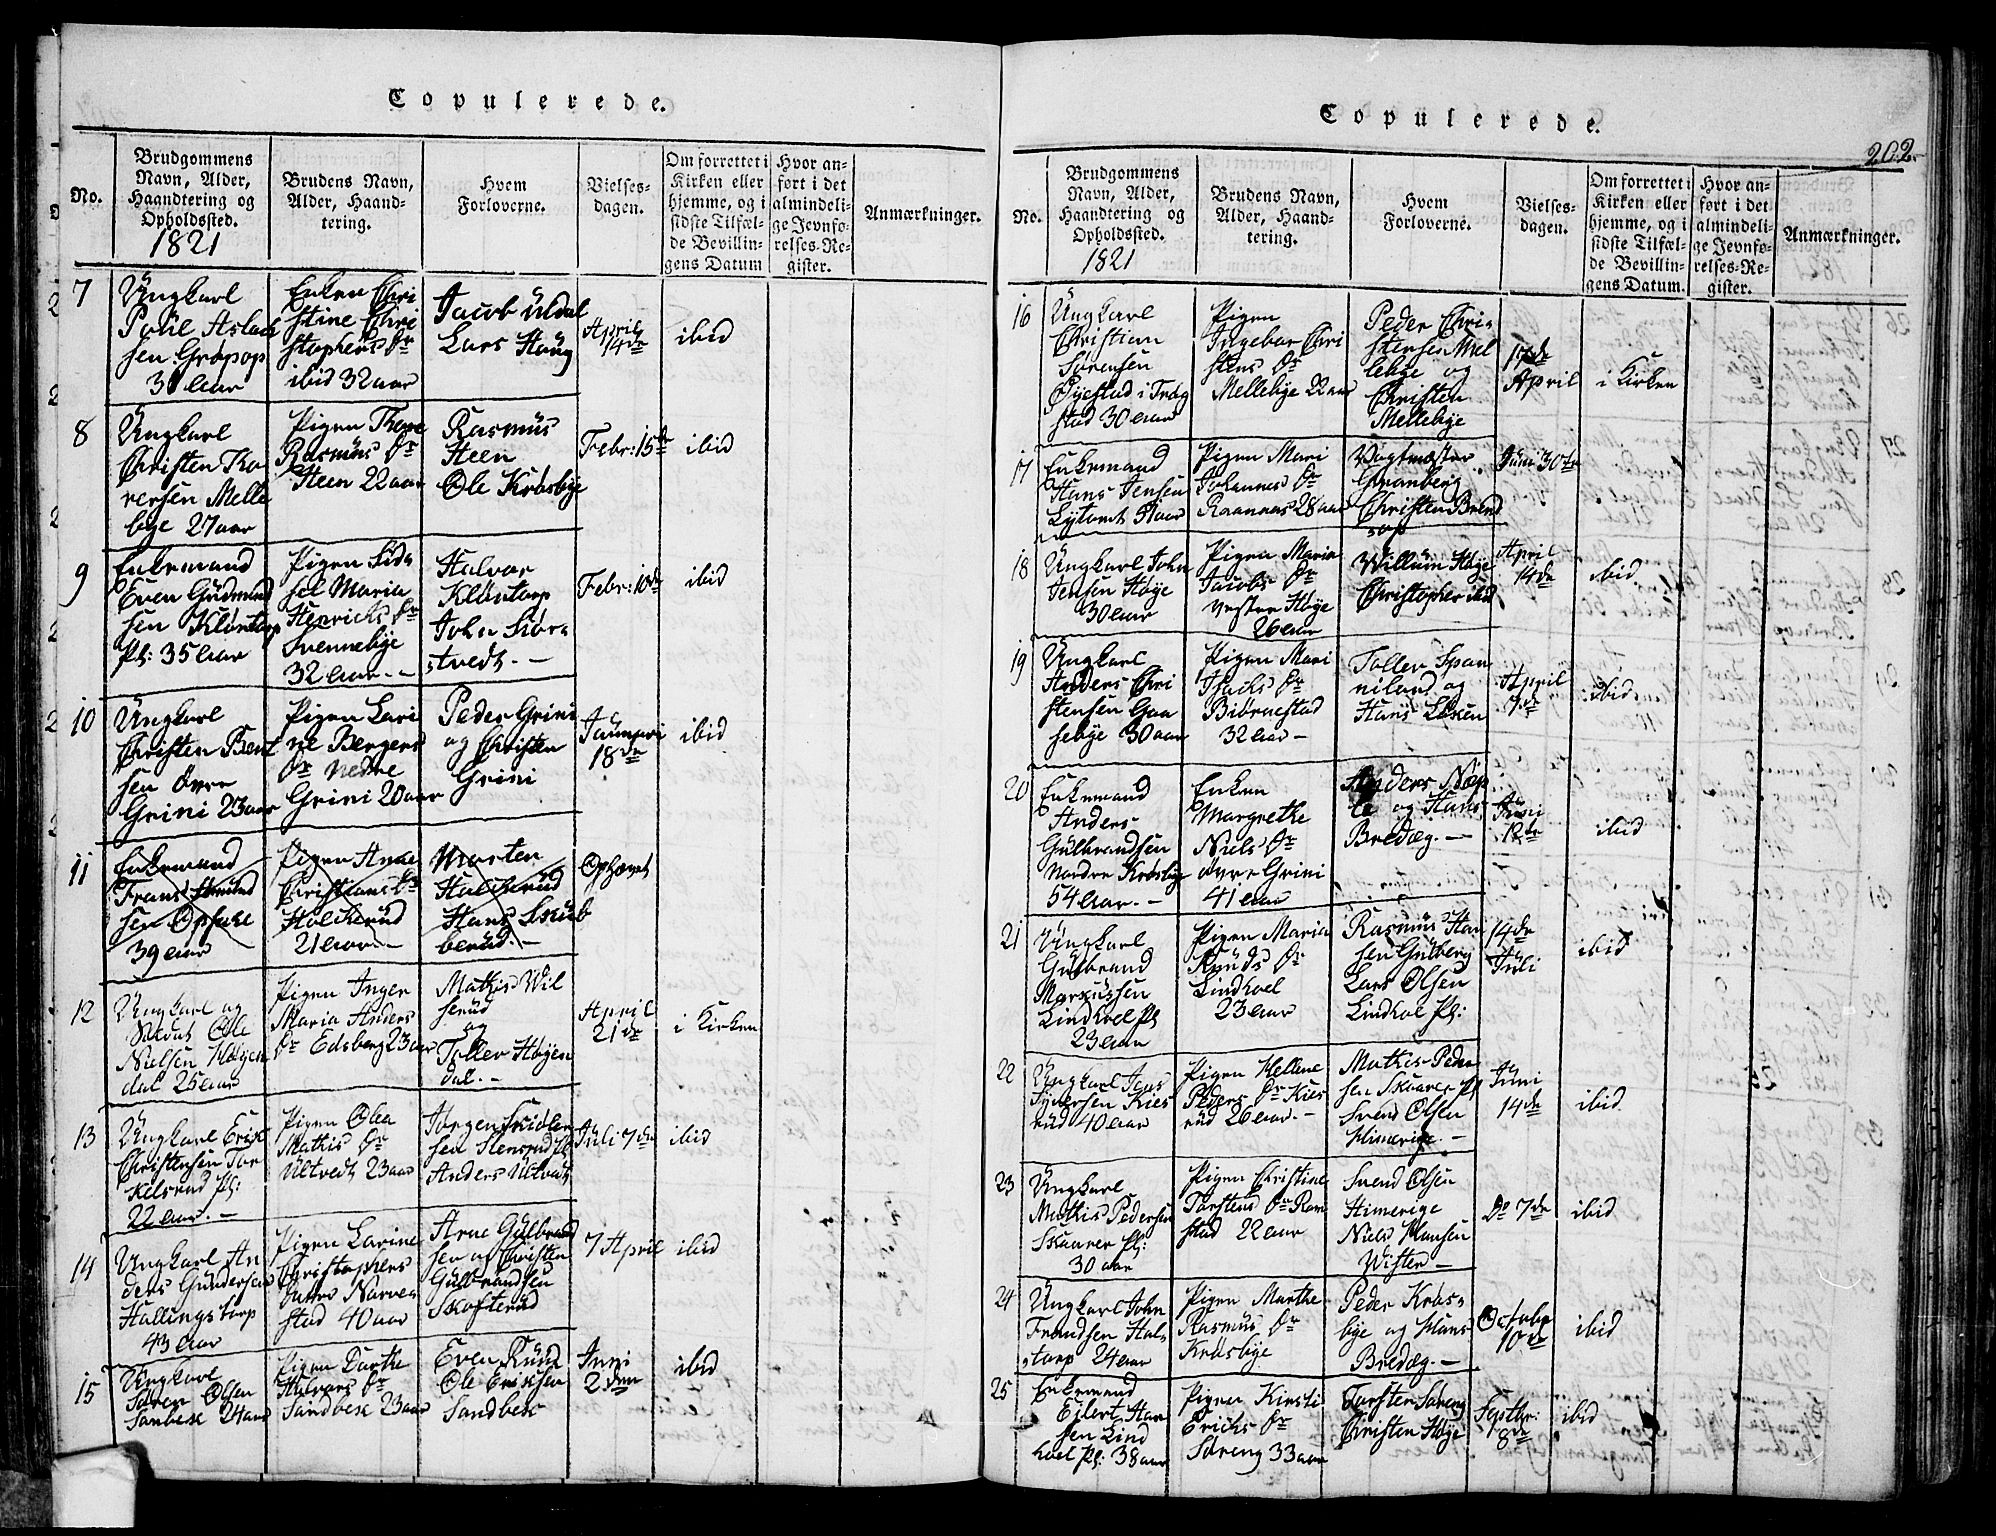 Copulerede.
No.
Brudgommens
Navn, Alder,
Haandtering og
Opholdssted.
1821
Brudens Navn,
Alder, Haand-
tering.
Hvem
Forloverne.
Vielses-
dagen.
Om forrettet i
Kirken eller
hjemme, og i
sidste Tilfæl-
de Bevillin-
gens Datum
Hvor an-
ført i det
almindeli-
ge Jevnfø-
relses-Re-
gister.
Anmærkninger.
7
Ungkarl
Poüel Aslak
sen Grøpop
Enken Chri
stine Chri
stophers Dr
ibid 32 aar
Jacob Uldal
Lars Haüg
April
14de
ibid
8
Ungkarl
Christen Tho
rersen Melle
bye 27 aar
Pigen Thore
Rasmüs Dr
Steen 22 aar
Rasmüs
Steen
Ole Kråsbye
Febr: 15de
ibid
9
Enkemand
Even Güdmund
sen Kløntorp
Pl: 35 aar
Pigen Sid-
sel Maria
Henricks Dr
Svennebye
32 aar. -
Halvor
Kløntorp
John Siør-
stvedt. -
Febr: 10de
ibid
10
Ungkarl
Christen Bent
sen øvre
Grini 23 aar
Pigen Lari
ne Bergers
Dr nedre
Grini 20 aar
Peder Grini
og Christen
Grini
Januari
18de
ibid
11
Enkemand
Frans
sen Opsahe
39 aar
Pigen Anne
Christians Dr
Halckerüd
21 aar. -
Morten
Halckerüd
Hans Sküb
berüd. -
Ophævet
12
Ungkarl og
Soldat Ole
Nielsen Høyen
dal 25 aar
Pigen Inger
Maria Anders
Dr Edsberg 23 aar
Mathis Wil
serüd
og
Toller Høyen
dal. -
April
21de
i Kirken
13
Ungkarl Erik
Christensen Tor
kelsrud Pl:
22 aar. -
Pigen Olea
Mathis Dr
Ultvedt 23 aar
Jørgen
sen Stensrud Pl
Anders Ultvedt
Jüli 7de
ibid
14
Ungkarl An
ders Gündersen
Hallingstorp
43 aar
Pigen Larine
Christophers
Datter Narve
stad 40 aar
Arne Gülbrand
sen og Christen
Gülbrandsen
Skofterüd
7 April
ibid
15
Ungkarl
Søren Olsen
Sanbek 24 aar
Pigen Dorthe
Halvors Dr
Sandbek 23 aar
Even Rüud
Ole Ericksen
Sandbek
Juni
2den
ibid
Copulerede.
202.
No.
Brudgommens
Navn, Alder,
Haandtering og
Opholdssted.
1821
Brudens Navn,
Alder, Haand-
tering.
Hvem
Forloverne.
Vielses-
dagen.
Om forrettet i
Kirken eller
hjemme, og i
sidste Tilfæl-
de Bevillin-
gens Datum.
Hvor an-
ført i det
almindeli-
ge Jevnfø-
relses-Re-
gister.
Anmærkninger.
16
Ungkarl
Christian
Sørensen
Øyestad i Trøg
stad 30 aar
Pigen
Ingebor Chri
stens Dr
Mellebye 22 aar
Peder Chri-
stensen Mel
lebye og
Christen
Mellebye
17de
April
i Kirken
17
Enkemand
Hans Jensen
Pigen Mari
Johannes Dr
Raanaas 28 aar
Vagtmæster
Granberg
Christen Brend
sop
Juni 30te
18
Ungkarl John
Jensen Høye
30 aar
Pigen Maria
Jacobs Dr
vestre Høye
26 aar
Willüm Høye
Christopher ibid
April
14de
ibid
19
Ungkarl
Anders Chri
stensen Gaa
sebye 30 aar
Pigen Mari
Isacks Dr
Biørnestad
32 aar -
Toller Span
niland og
Hans Løken
April
7de
ibid
20
Enkemand
Anders
Gülbrandsen
Nordre Kråsbye
54 aar. -
Enken
Margrethe
Niels Dr
øvre Grini
41 aar
Anders Næp
le og Hans
Bredæg. -
Juni
12de
ibid
21
Ungkarl
Gülbrand
Markussen
Lindhoel Pl
23 aar
Pigen Maria
Knüds Dr
Lindhoel
23 aar
Rasmüs Han
sen Gülberg
Lars Olsen
Lindhol Pl:
14de
Jüli
ibid
22
Ungkarl Jens
Syversen Kies
rüd 40 aar
Pigen Hellene
Peders Dr Kies
rüd 26 aar. -
Mathis Peder
sen Skaarer Pl
Svend Olsen
Himerige. -
Jüni
14de
ibid
23
Ungkarl
Mathis Pedersen
Skaarer Pl:
30 aar
Pigen Christine
Torstens Dr Ram
stad 22 aar
Svend Olsen
Himerige
Niels Hansen
Wister -
Do 7de
ibid
24
Ungkarl John
Frandsen Hal-
storp 24 aar
Pigen Marthe
Rasmus Dr
Kråsbye
Peder Krås-
bye og Hans
Bredæg. -
Octobr
10de
ibid
25
Enkemand
Eilert Han
sen Lind
hoel Pl: 38 aar
Pigen Kirsti
Ericks Dr
Søreng 33 aar
Torsten Søreng
Christen Høye
Septbr:
8de
ibid